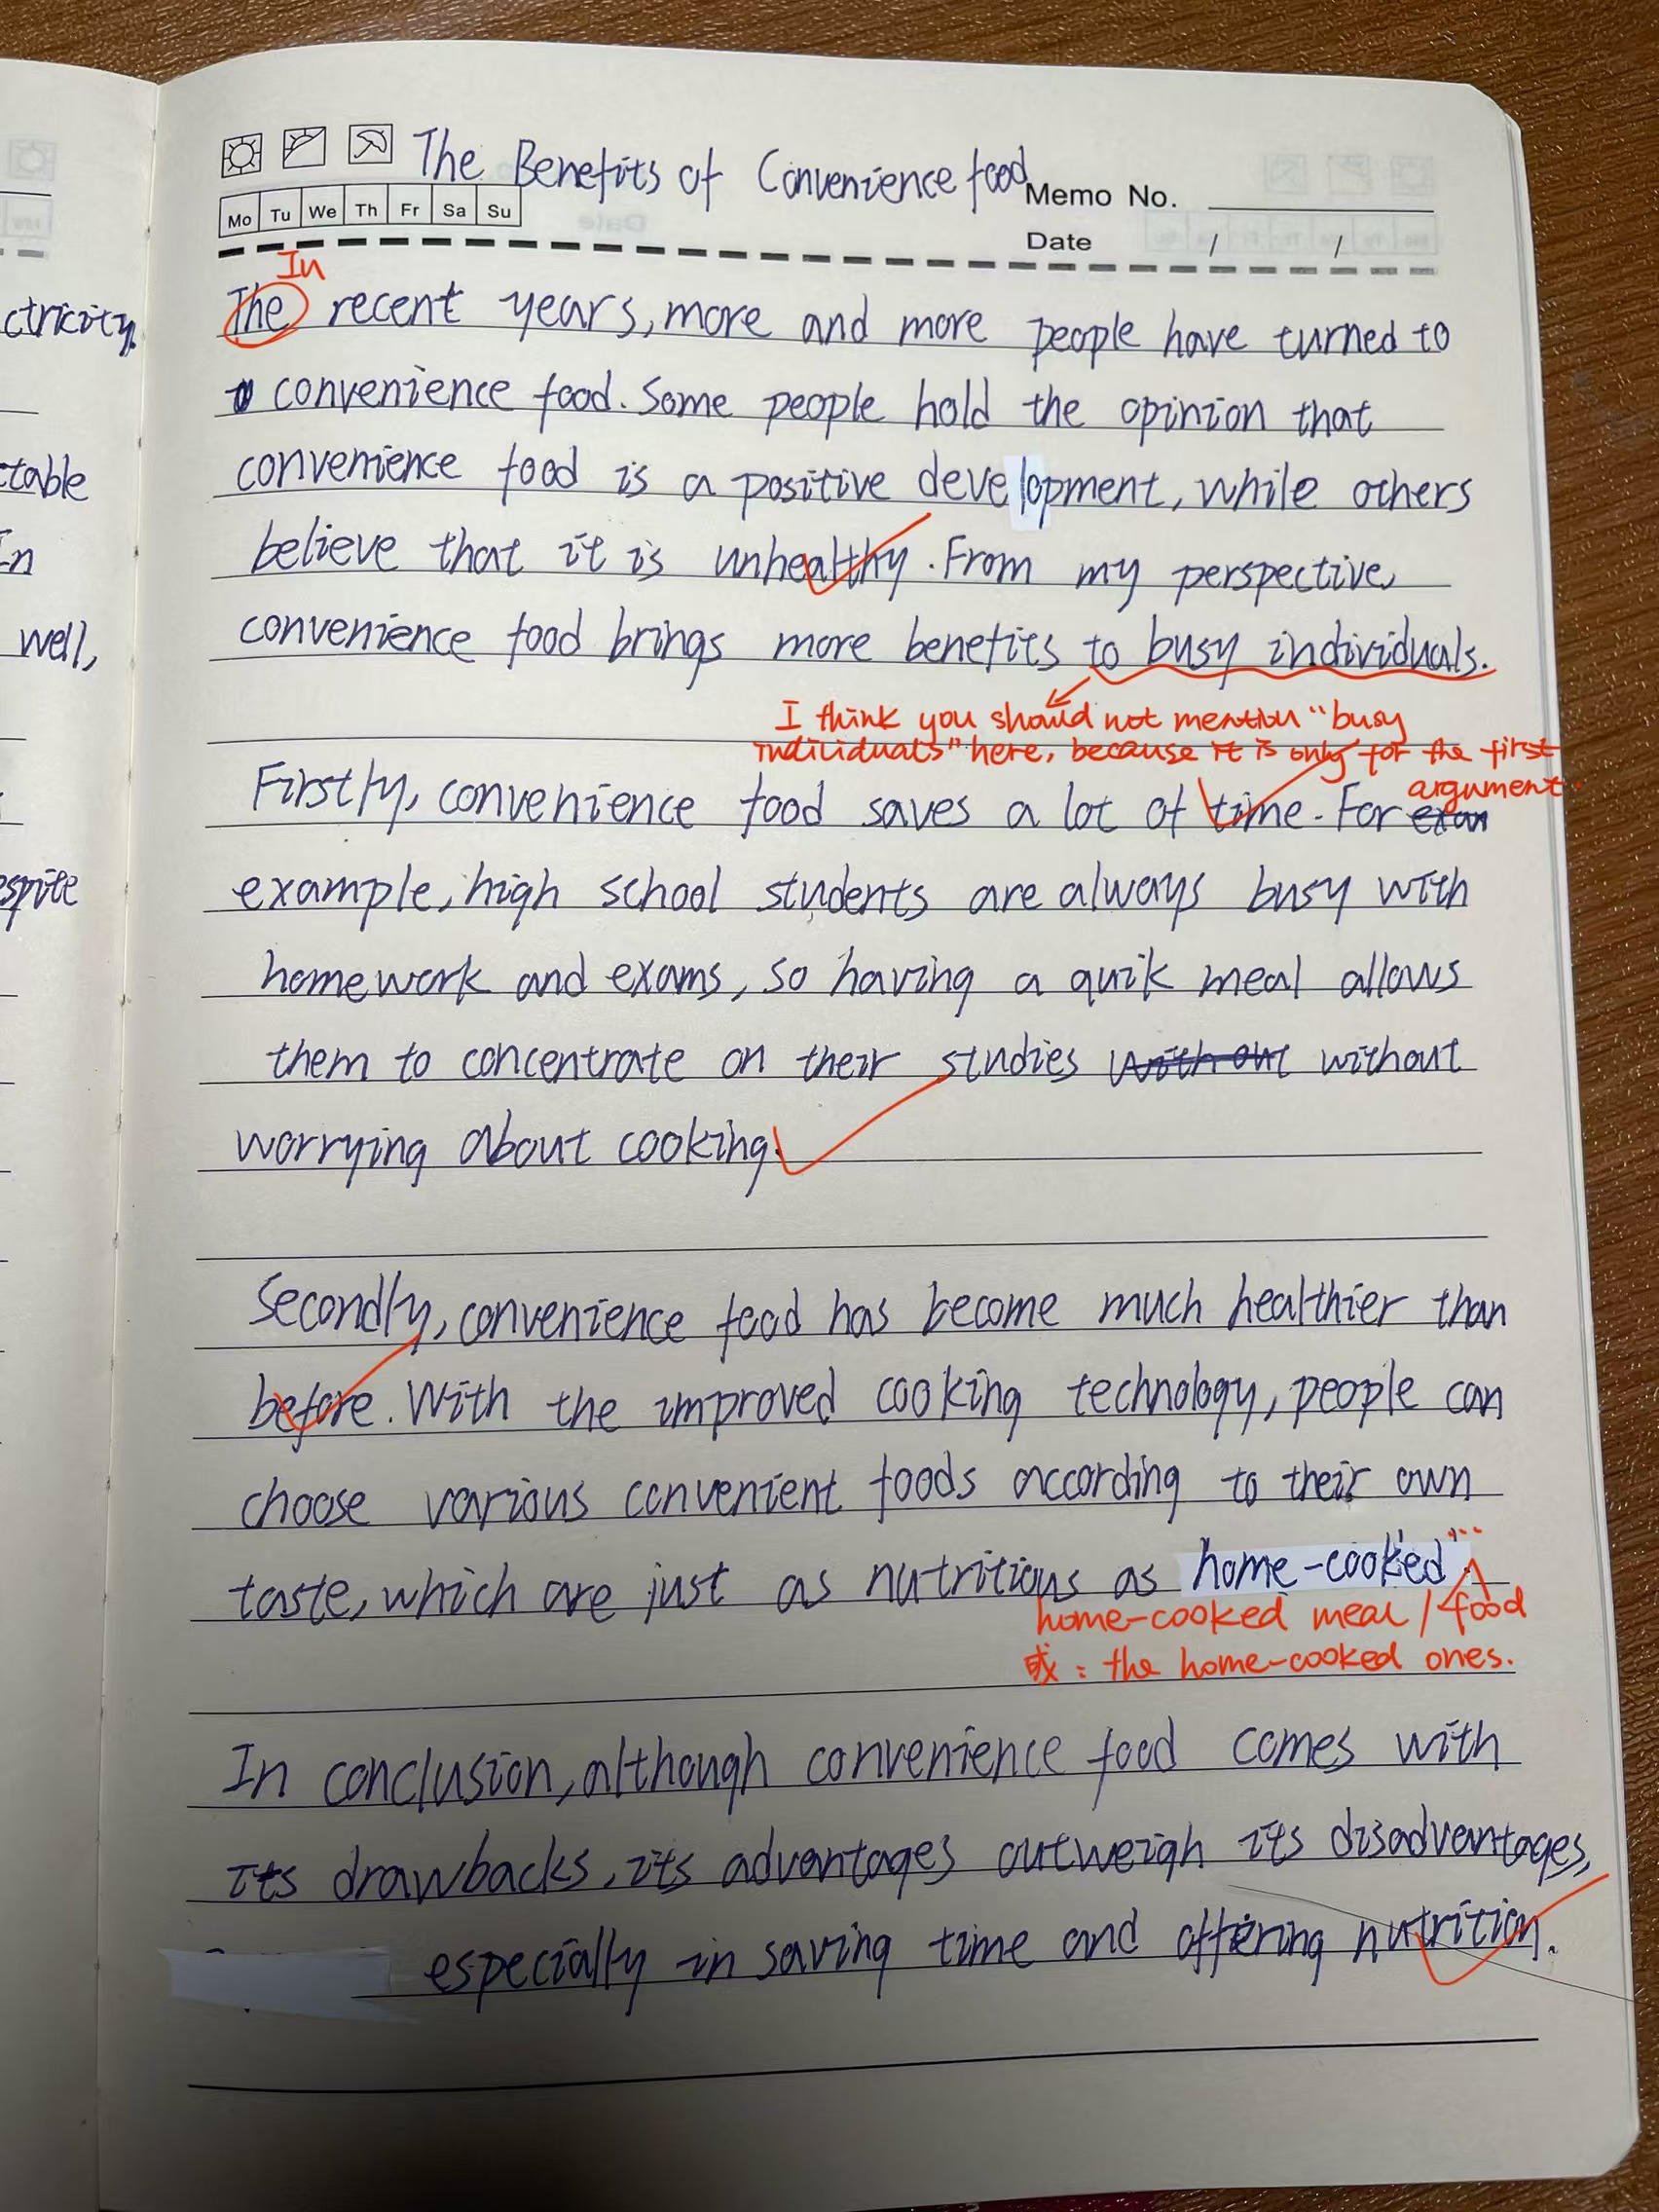 The Benefits of Convenience food
Memo No.
Mo Tu We Th Fr Sa Su
Date / /
In
The recent years, more and more people have turned to
convenience food. Some people hold the opinion that
convenience food is a positive development, while others
believe that it is unhealthy. From my perspective,
convenience food brings more benefits to busy individuals.
I think you should not mention "busy
individuals" here, because it is only for the first
argument.
Firstly, convenience food saves a lot of time. For exam
example, high school students are always busy with
homework and exams, so having a quik meal allows
them to concentrate on their studies without without
worrying about cooking.
Secondly, convenience food has become much healthier than
before. With the improved cooking technology, people can
choose various convenient foods according to their own
taste, which are just as nutritious as home-cooked".
home-cooked meal / food
或: the home-cooked ones.
In conclusion, although convenience food comes with
its drawbacks, its advantages outweigh its disadvantages,
especially in saving time and offering nutrition.
ctricity.
table
In
well,
espite